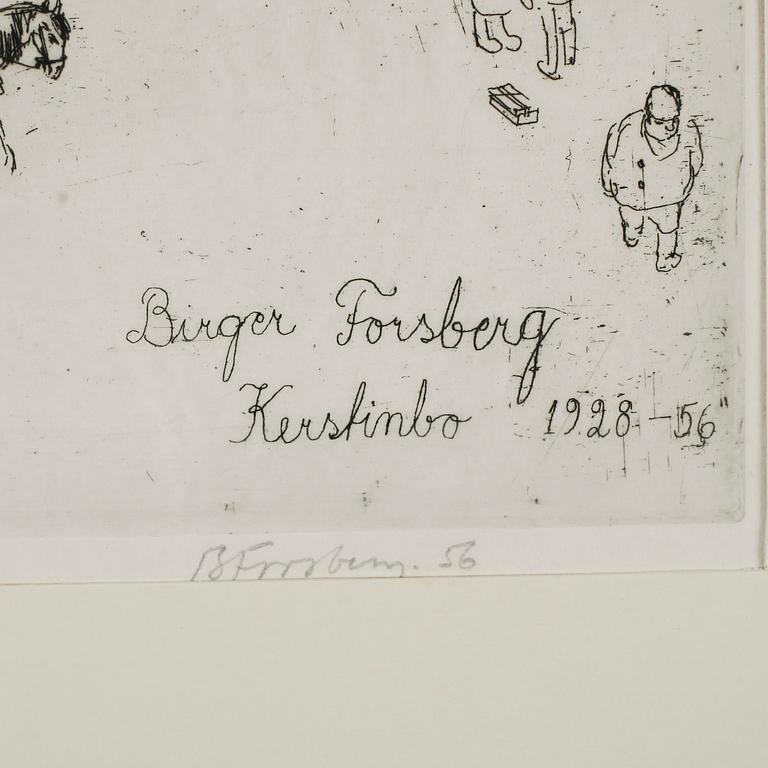 Birger Forsberg
Kerstinbo 1928-56"
B Forsberg. 56